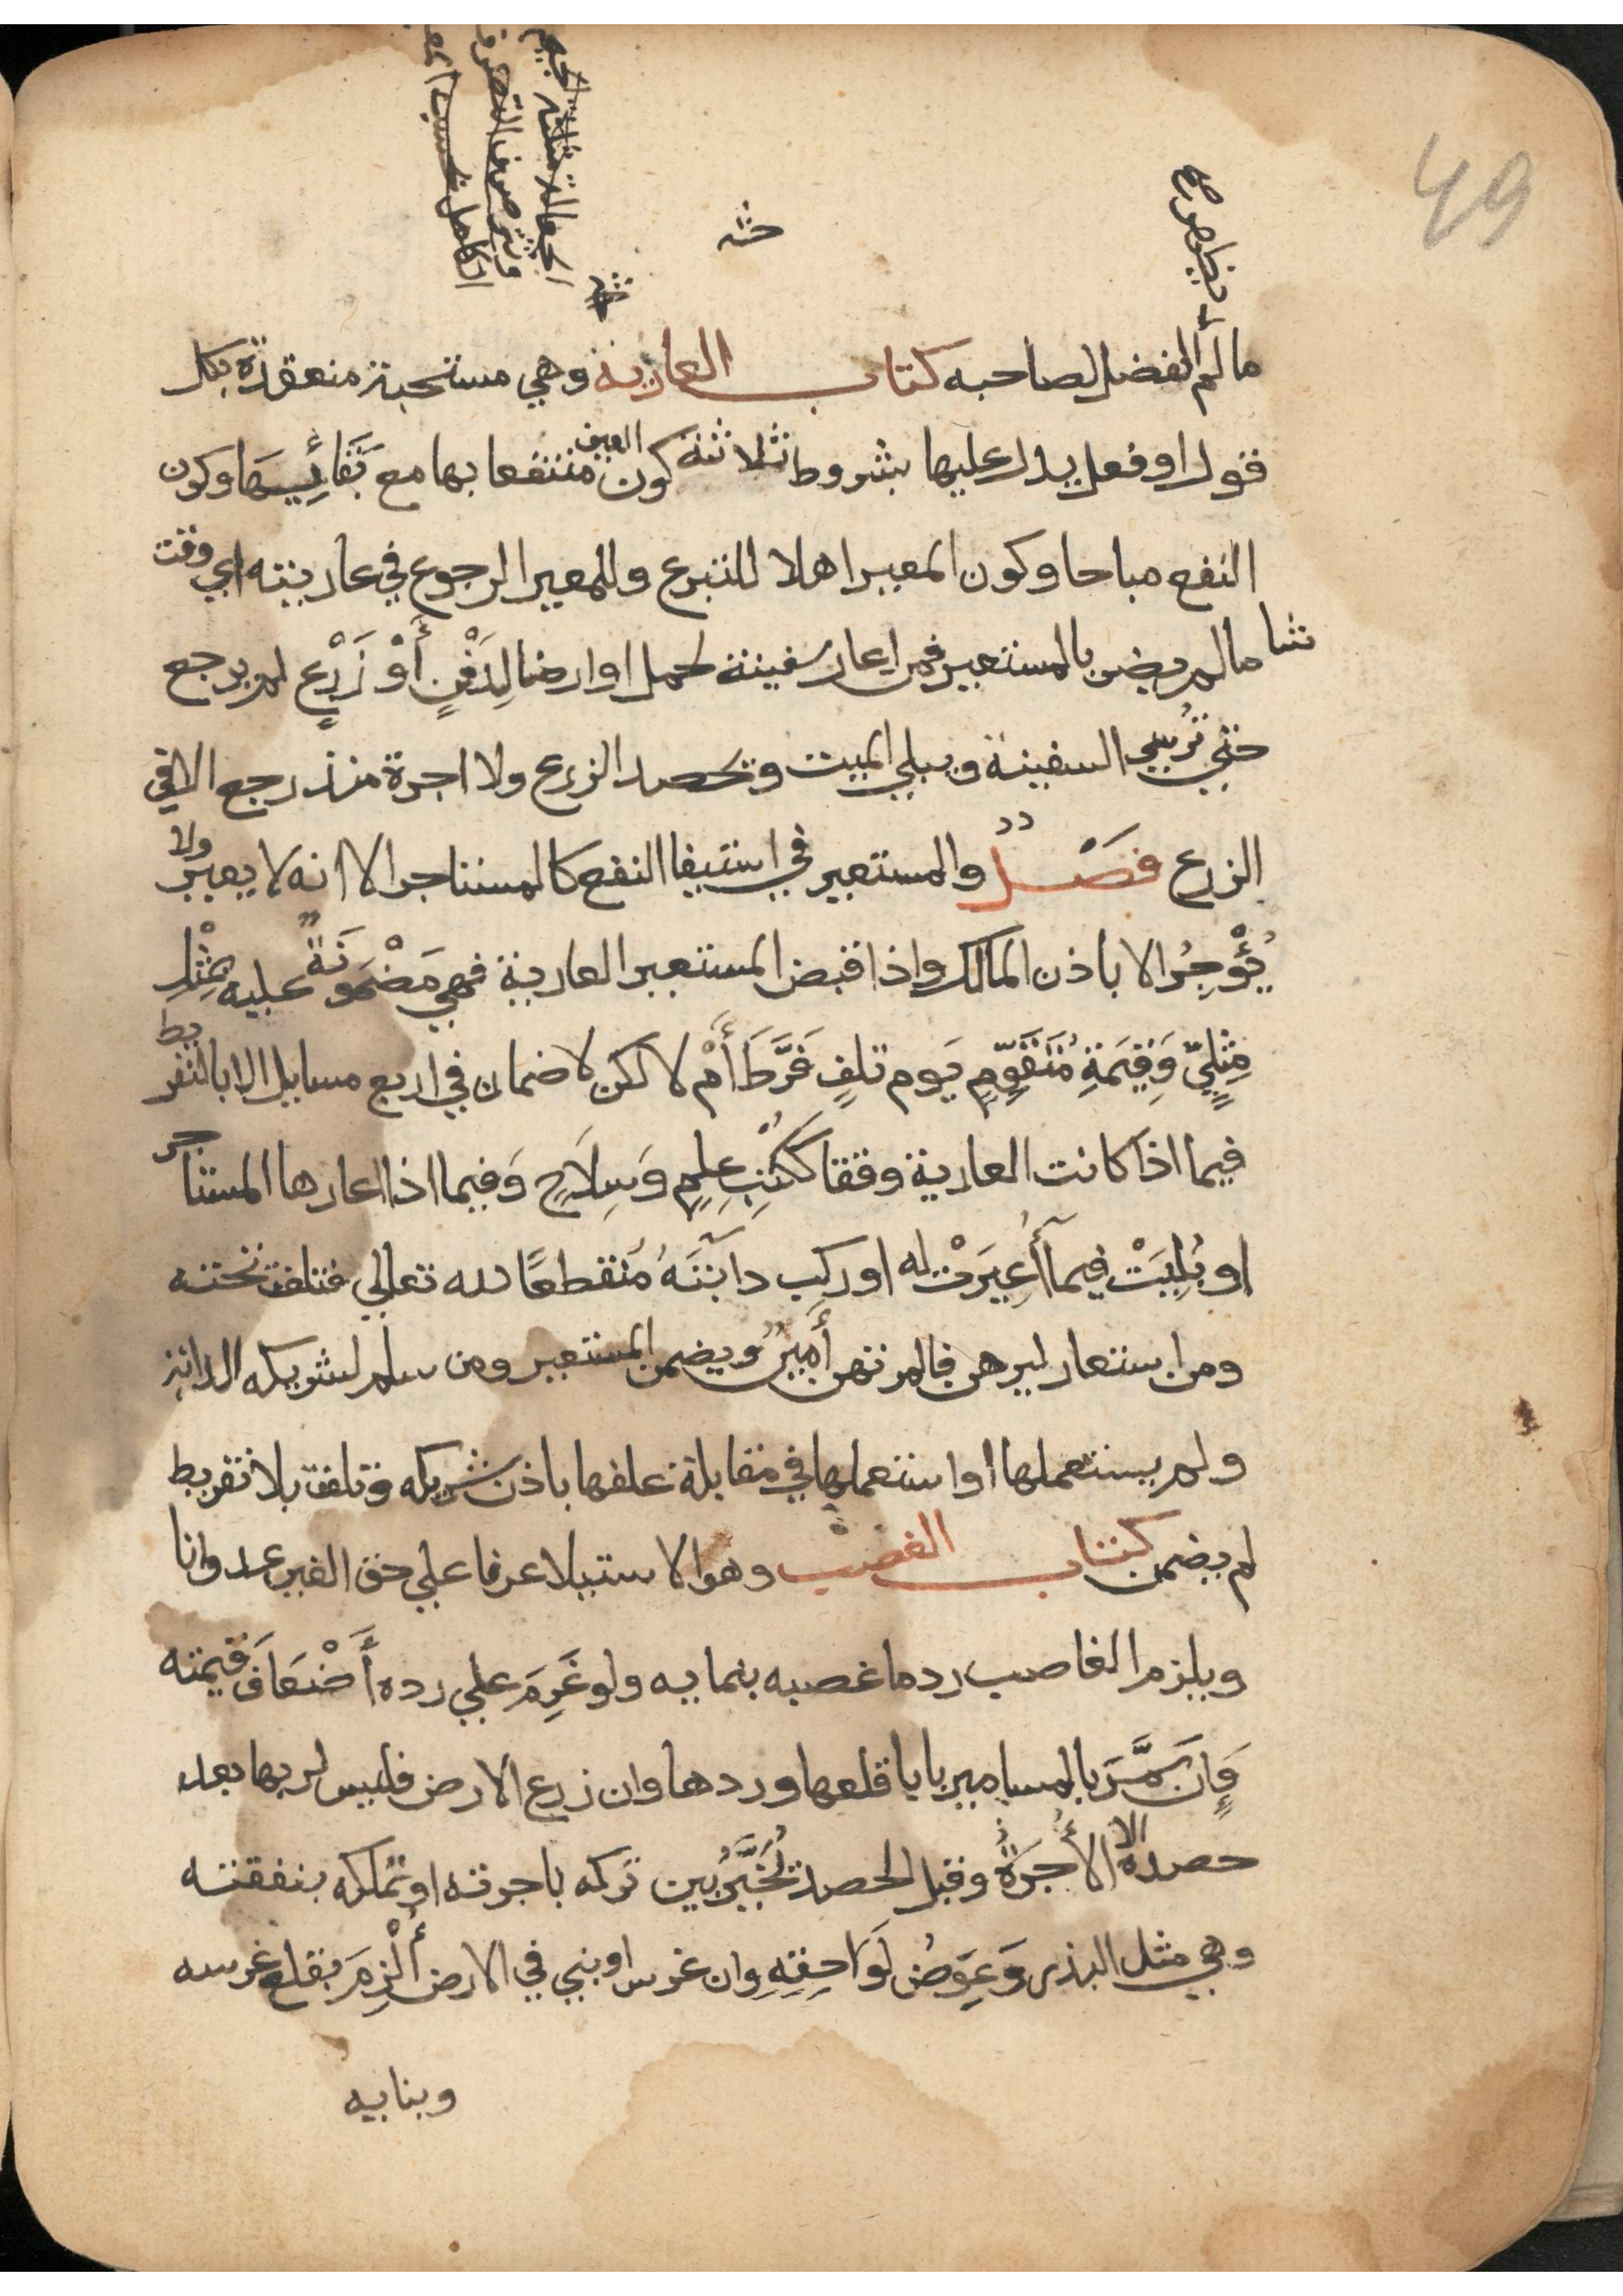 49
الجعالة مثلثة الجيم
حثه
ما لم الفضل لصاحبه كتاب العارية وهي مستحبة منعقدة بكل
قول او فعل يدل عليها بشروط ثلاثة كون العين منتفعا بها مع بقائها وكون
النفع مباحا وكون المعير اهلا للتبرع وللمعير الرجوع في عاريته اي وقت
شا ما لم يضر بالمستعير فمن اعار سفينة لحمل او ارضا لِدَفْنٍ أَوْ زَرْعٍ لم يرجع
حتي تُرْسي السفينة ويبلي الميت وتحصد الزرع ولا اجرة منذ رجع الا في
الزرع فصْل والمستعير في استيفا النفع كالمستاجر الا انه لا يعير ولا
يُؤْجِرُ الا باذن المالك واذا قبض المستعير العارية فهي مَضْمُونَةٌ عليه بِمِثْلِ
مِثْلِيٍّ وَقِيمَةِ مُتَقَوِّمٍ يَوم تلفٍ فَرَّطَ أَمْ لا لكن لا ضمان في اربع مسايل الا بالتفريط
فيما اذا كانت العارية وقفا كَكُتُبِ عِلمٍ وَسِلَاحٍ وَفيما اذا اعارها المستاجر
او بُلِيَتْ فيما أُعِيرَتْ له او ركب دابتَهُ مُنقطعًا لله تعالي فتلفت تحته
ومن استعار ليرهن فالمرتهن أَمِينٌ ويضمن المستعير ومن سلم لشريكه الدابة
ولم يستعملها او استعملها في مقابلة علفها باذن شريكه وتلفت بلا تفريط
لم يضمن كتاب الغصب وهو الاستيلا عرفا علي حق الغير عدوانا
ويلزم الغاصب رد ما غصبه بنمايه ولو غَرِمَ علي رده أَضْعَافَ قيمته
وَإِن سَمَّرَ بالمسامير بابا قلعها وردها وان زرع الارض فليس لربها بعد
حصده الا الأُجْرَةُ وقبل الحصد يُخَيَّرُ بين تركه باجرته او تملكه بنفقته
وهي مثل البذر وَعِوَضُ لَوَاحِقِهِ وان غرس او بني في الارض أُلْزِمَ بقلع غرسه
وبنايه